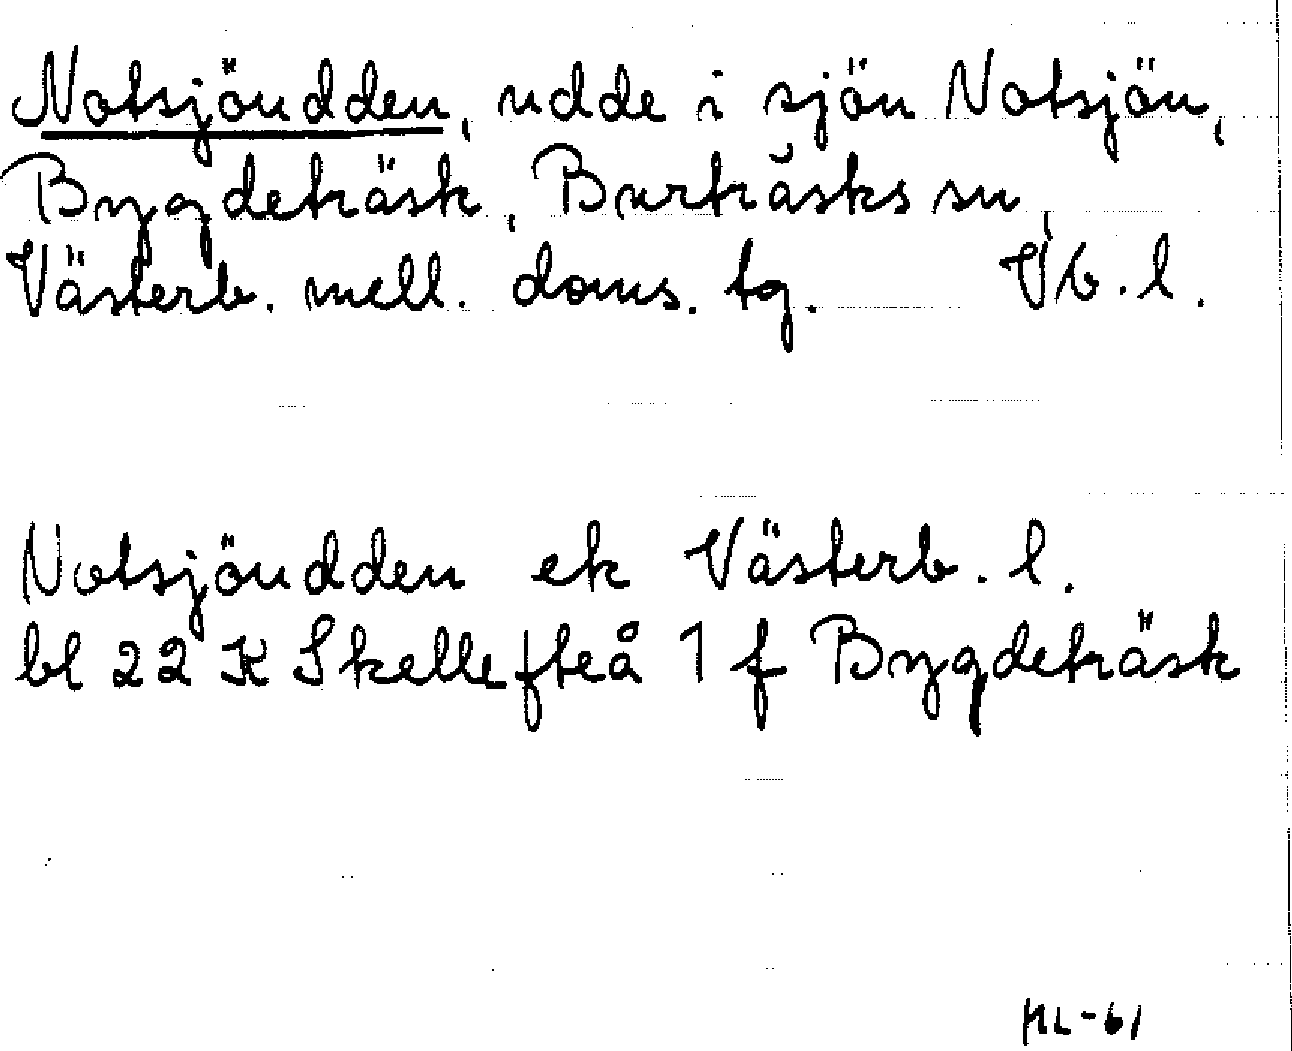 Notsjöudden, udde i sjön Notsjön,
Bygdeträsk, Burträsks sn,
Västerb. mell. doms. tg. Vb. l.
Notsjöudden ek Västerb. l.
bl 22 K Skellefteå 1 f Bygdeträsk
ML-61